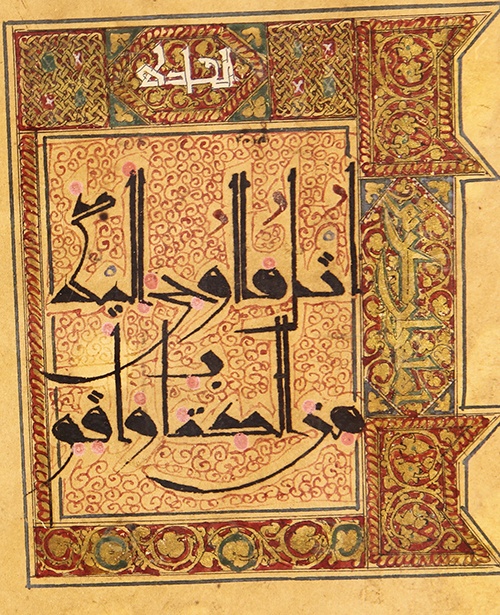 الحادي
اتل ما اوحي اليك
من الكتاب واقم